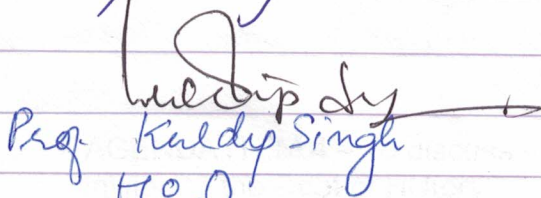 Kuldip Sy
Prof. Kuldip Singh
H.O.D.